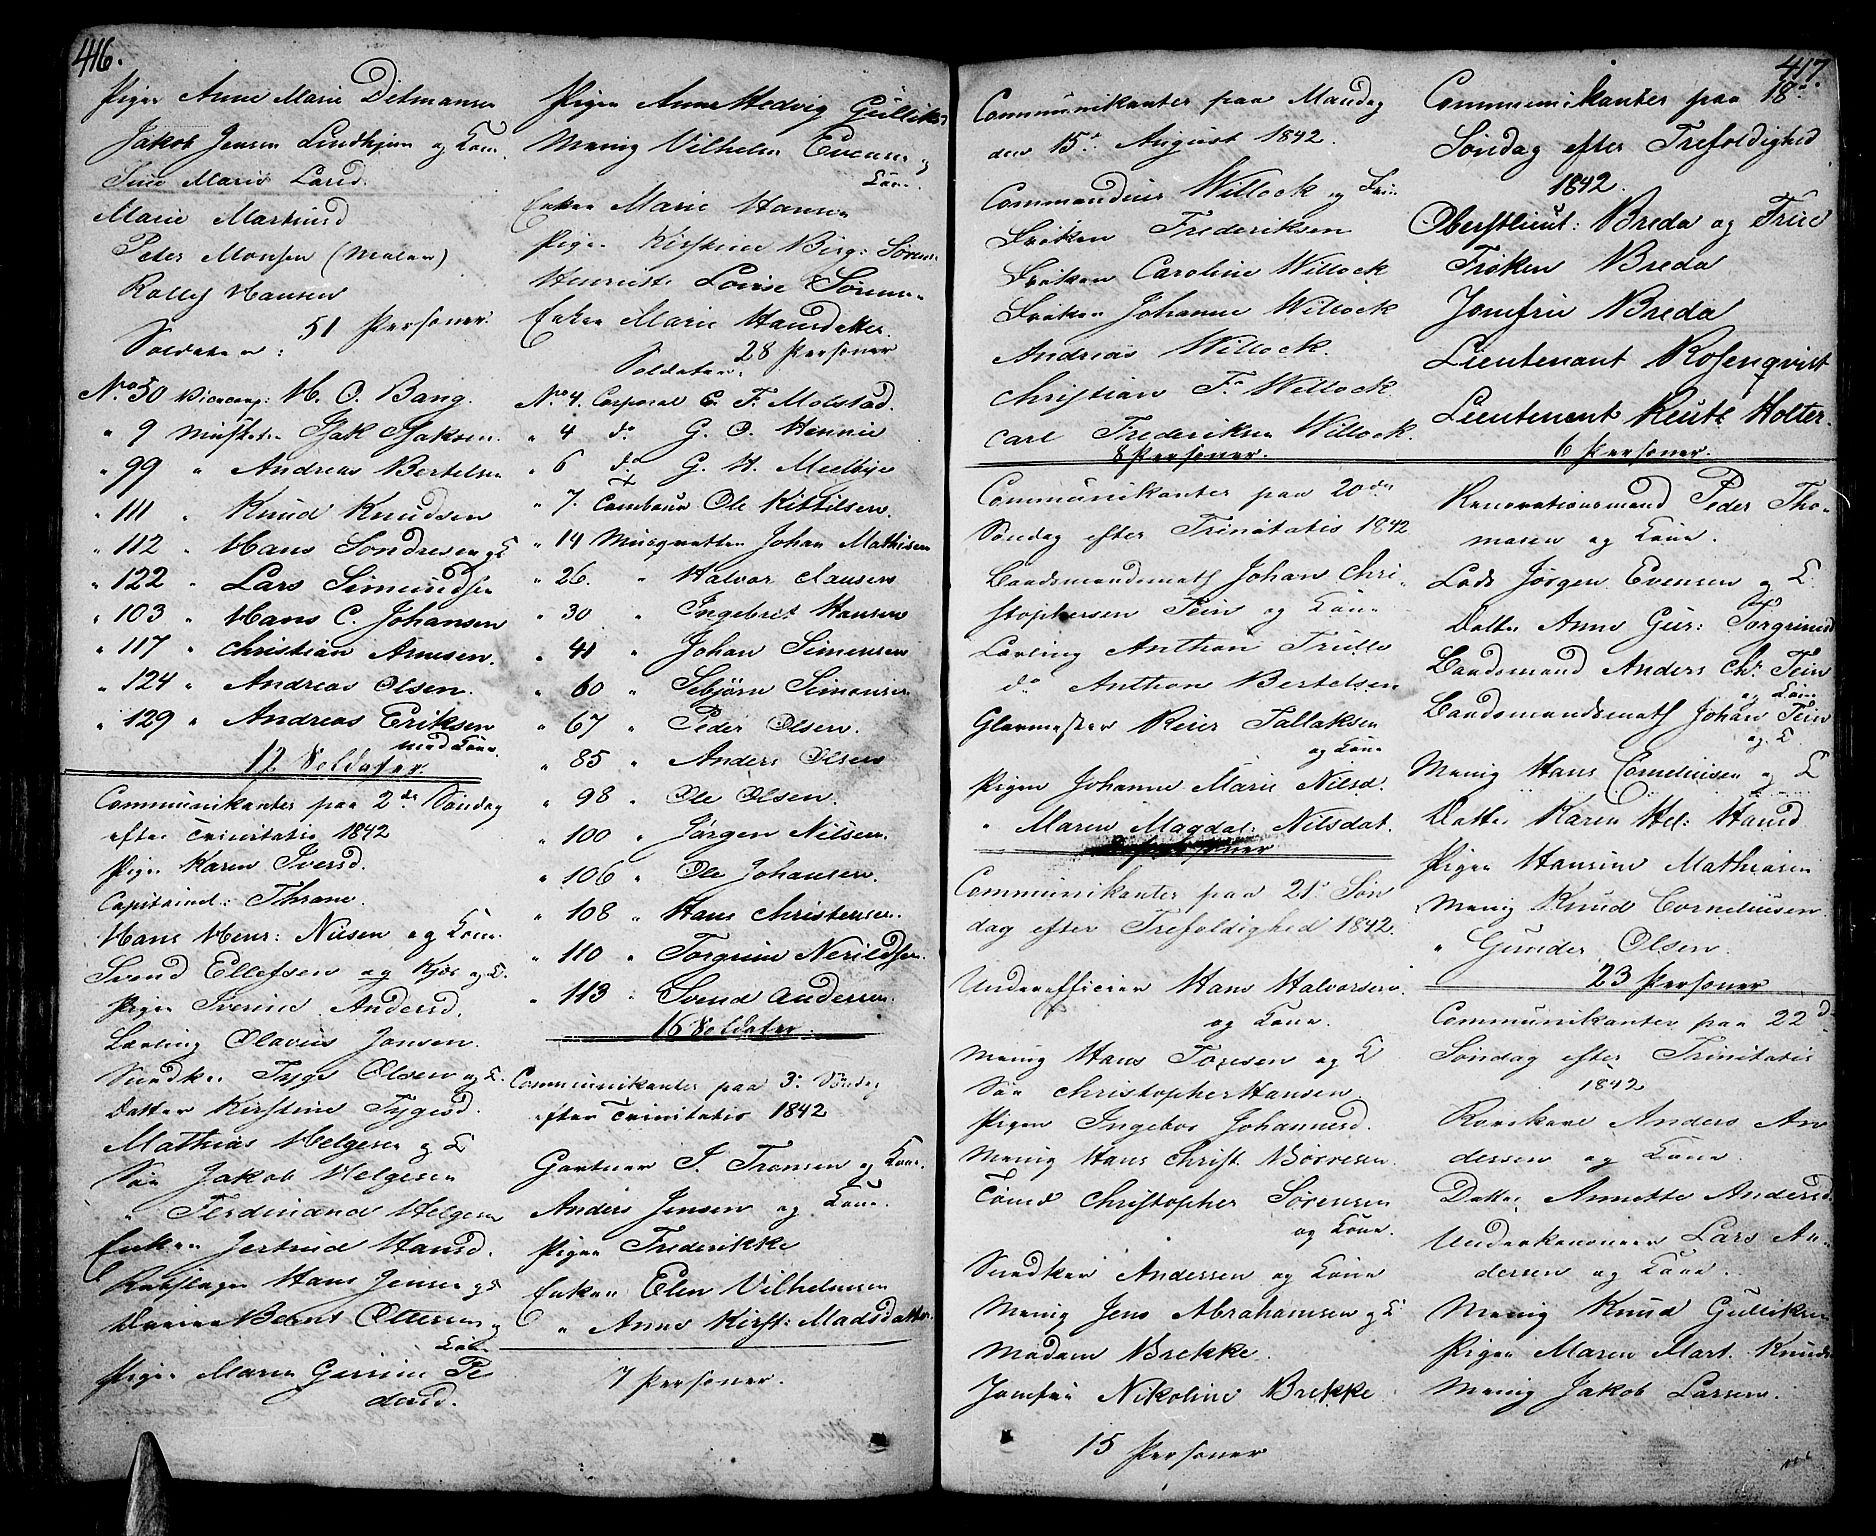 416.
Pigen Anne Marie Detmansen
Jakob Jensen Lindhjem og Kone
Sine Marie Larsd.
Marie Martinsd
Peter Monsen (Maler)
Rollef Hansen
51 Personer.
Soldater:
No. 50 Vicecorp: H. O. Bang.
" 9 Musketer Isak Isaksen.
" 99 " Andreas Bertelsen
" 111 " Knud Knudsen
" 112 " Hans Sondresen og K
" 122 " Lars Simundsen
" 103 " Hans C. Johansen
" 117 " Christian Arnesen.
" 124 " Andreas Olsen.
" 129 " Andreas Eriksen
med Kone
12 Soldater.
Communikanter paa 2de Søndag
efter Trinitatis 1842
Pigen Karen Iversd.
Capitaine: Thrane.
Hans Henr: Nilsen og Kone.
Svend Ellefsen og Kjær og K.
Pigen Iverine Andersd.
Lærling Olavus Jonsen.
Snedker Tyge Olsen og K.
Datter Kirstine Tygesd.
Mathias Helgesen og K
Søn Jakob Helgesen
" Ferdinand Helgesen
Enken Jertrud Hansd.
Rebslager Hans Jensen og K
Dreier Bernt Ottersen og
Kone
Pigen Maren Gurine Pe
dersd.
Pigen Anne Hedvig Gulliks
Menig Vilhelm Evensen og
Kone.
Enken Marie Hansen
Pigen Kirstine Birg: Sørens
Henriette Lovise Sørens
Enken Marie Hansdatter.
28 Personer
Soldater.
No. 4. Corporal C. F. Molstad.
" 4 do G. O. Hennie
" 6 do G. H. Meelbye
" 7. Tambour Ole Kittilsen.
" 14 Musquetter Johan Mathisen
" 26. " Halvor Clausen
" 30 " Ingebret Hansen
" 41 " Johan Simensen
" 60 " Sebjørn Simonsen
" 67 " Peder Olsen.
" 85 " Anders Olsen
" 98 " Ole Olsen.
" 100 " Jørgen Nilsen.
" 106 " Ole Johansen.
" 108 " Hans Christensen.
" 110 " Torgrim Nerildsen.
" 113 " Svend Andersen.
16 Soldater.
Communikanter paa 3. Søndag
efter Trinitatis 1842
Gartner I. Tronsen og Kone.
Anders Jensen og Kone.
Pigen Frederikke
Enken Elen Vilhelmsen
" Anne Kirst: Madsdatter.
7 Personer.
417.
Communikanter paa Mandag
den 15de August 1842.
Commandeur Willock og Frue
Frøken Frederiksen
Frøken Caroline Willock
Frøken Johanne Willock
Andreas Willock.
Christian Fr. Willock.
Carl Frederiksen Willock.
8 Personer.
Communikanter paa 20de
Søndag efter Trinitatis 1842
Baadsmandsmath Johan Chri-
stophersen Tein og Kone
Lærling Anthon Trulls
do Anthon Bertelsen
Glarmester Reier Tallaksen
og Kone
Pigen Johanne Marie Nilsd.
" Maren Magdal: Nilsdat.
Communikanter paa 21de Søn
dag efter Trefoldighed 1842.
Underofficier Hans Halvorsen.
og Kone.
Menig Hans Toresen og K
Søn Christopher Hansen
Pigen Ingebor Johannesd.
Menig Hans Christ. Børresen.
Tømd Christopher Sørensen
og Kone.
Snedker Andersen og Kone
Menig Jens Abrahamsen og K
Madam Brekke.
Jomfru Nikoline Brekke
15 Personer
Communikanter paa 18de
Søndag efter Trefoldighed
1842.
Oberstlieut: Breda og Frue
Frøken Breda
Jomfru Breda
Lieutenant Rosenqvist
Lieutenant Reutz Holter.
6 Personer.
Renovationsmand Peder Tho-
masen og Kone.
Lods Jørgen Evensen og K.
Datter Anne Gur: Torgrimsd
Baadsmand Anders Chr. Tein
og Kone
Baadsmandsmath Johan Tein
og K.
Menig Hans Corneliusen og K
Datter Karen Hel: Hansd
Pigen Hansine Mathiasen
Menig Knud Corneliusen.
" Gunder Olsen.
23 Personer
Communikanter paa 22d
Søndag efter Trinitatis
1842
Anders An
dersen og Kone.
Datter Annette Andersd.
Underkanoneer Lars An-
dersen og Kone.
Menig Knud Gulliksen
Pigen Maren Mart. Knuds
Menig Jakob Larsen.